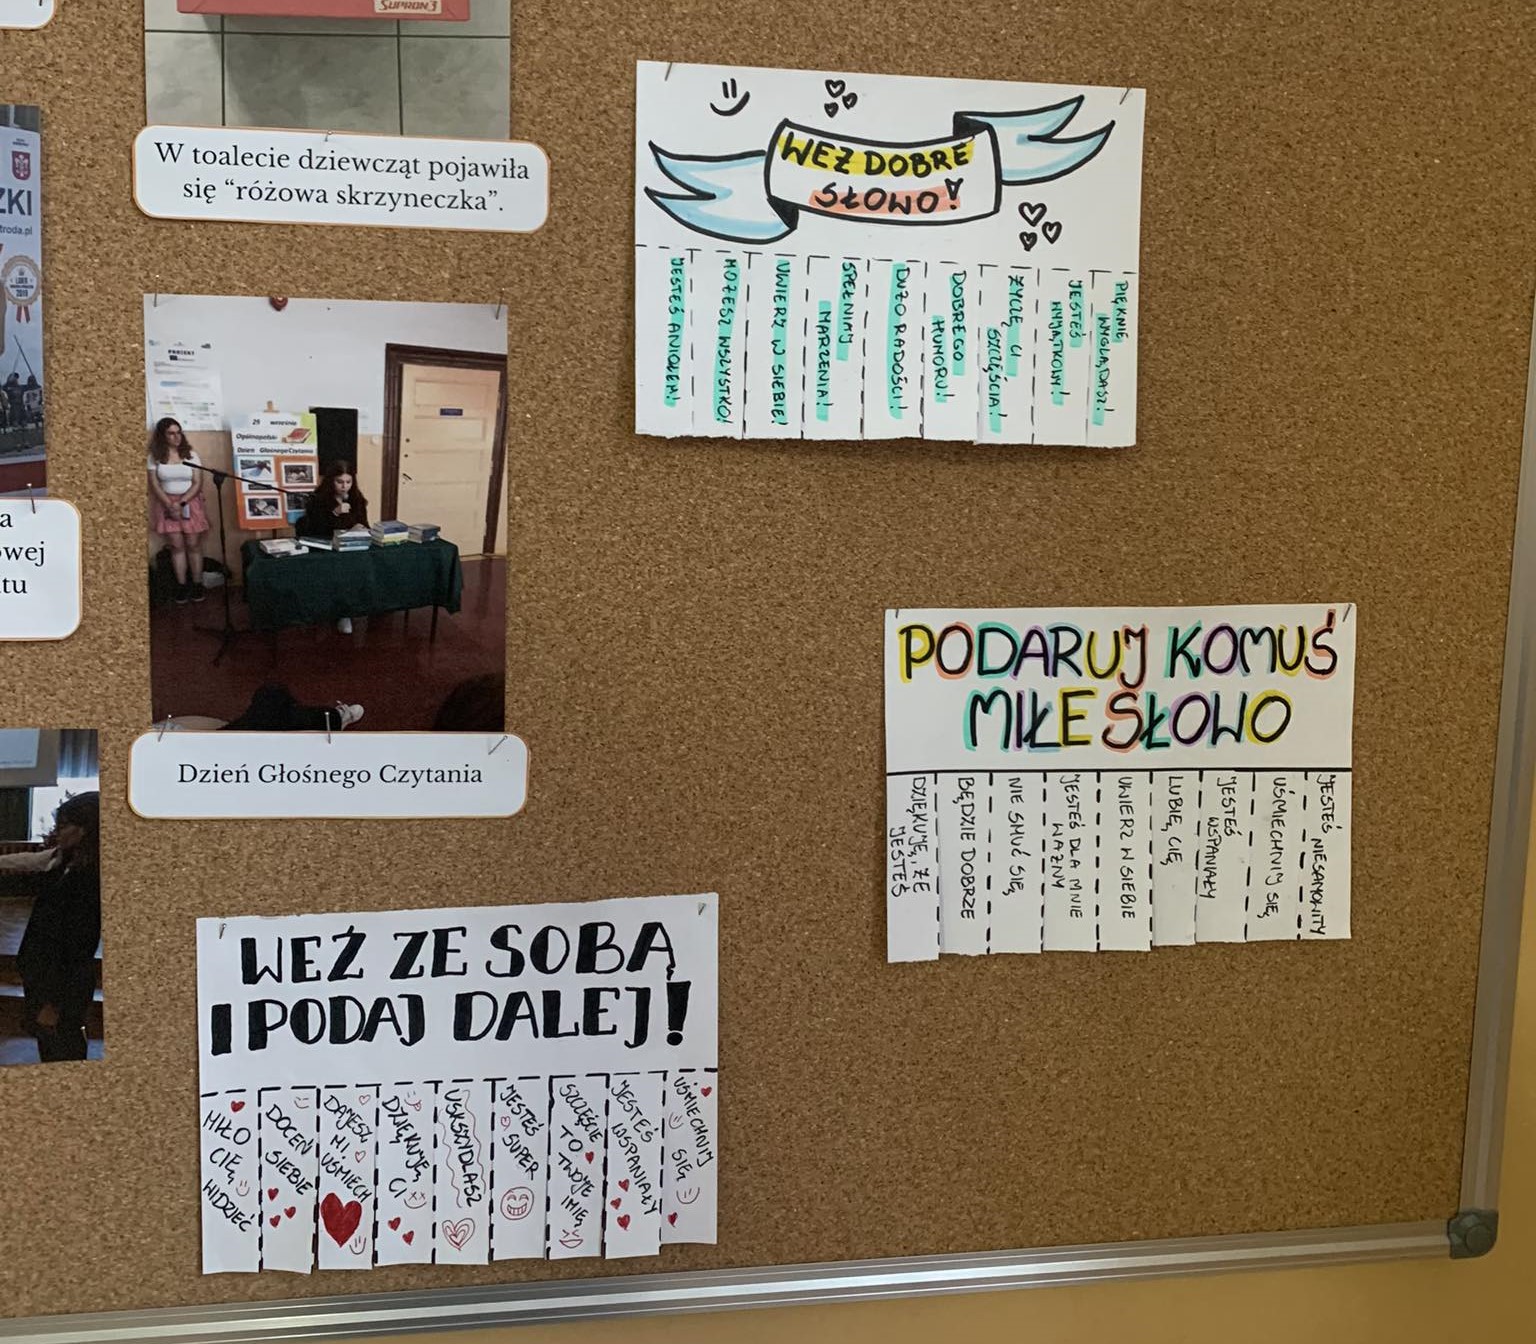 SUPRON3
W toalecie dziewcząt pojawiła
się “różowa skrzyneczka”.
ZKI
troda.pl
LIDER
2019
a
owej
tu
PROJEKT
29 września
Ogólnopolski
Dzień Głośnego Czytania
Dzień Głośnego Czytania
WEŹ DOBRE
SŁOWO!
JESTEŚ ANIOŁEM!
MOŻESZ WSZYSTKO!
UWIERZ W SIEBIE!
SPEŁNIAJ
MARZENIA!
DUŻO RADOŚCI!
DOBREGO
HUMORU!
ŻYCZĘ CI
SZCZĘŚCIA!
JESTEŚ
WYJĄTKOWY!
PIĘKNIE
WYGLĄDASZ!
PODARUJ KOMUŚ
MIŁE SŁOWO
DZIĘKUJĘ, ŻE
JESTEŚ
BĘDZIE DOBRZE
NIE SMUĆ SIĘ
JESTEŚ DLA MNIE
WAŻNY
UWIERZ W SIEBIE
LUBIĘ CIĘ
JESTEŚ
WSPANIAŁY
UŚMIECHNIJ SIĘ
JESTEŚ NIESAMOWITY
WEŹ ZE SOBĄ
I PODAJ DALEJ!
MIŁO
CIĘ
WIDZIEĆ
DOCEŃ
SIEBIE
DAJESZ
MI
UŚMIECH
DZIĘKUJĘ
CI
USKSZYDLASZ
JESTEŚ
SUPER
SZCZĘŚCIE
TO
TWOJE
IMIĘ
JESTEŚ
WSPANIAŁY
UŚMIECHNIJ
SIĘ